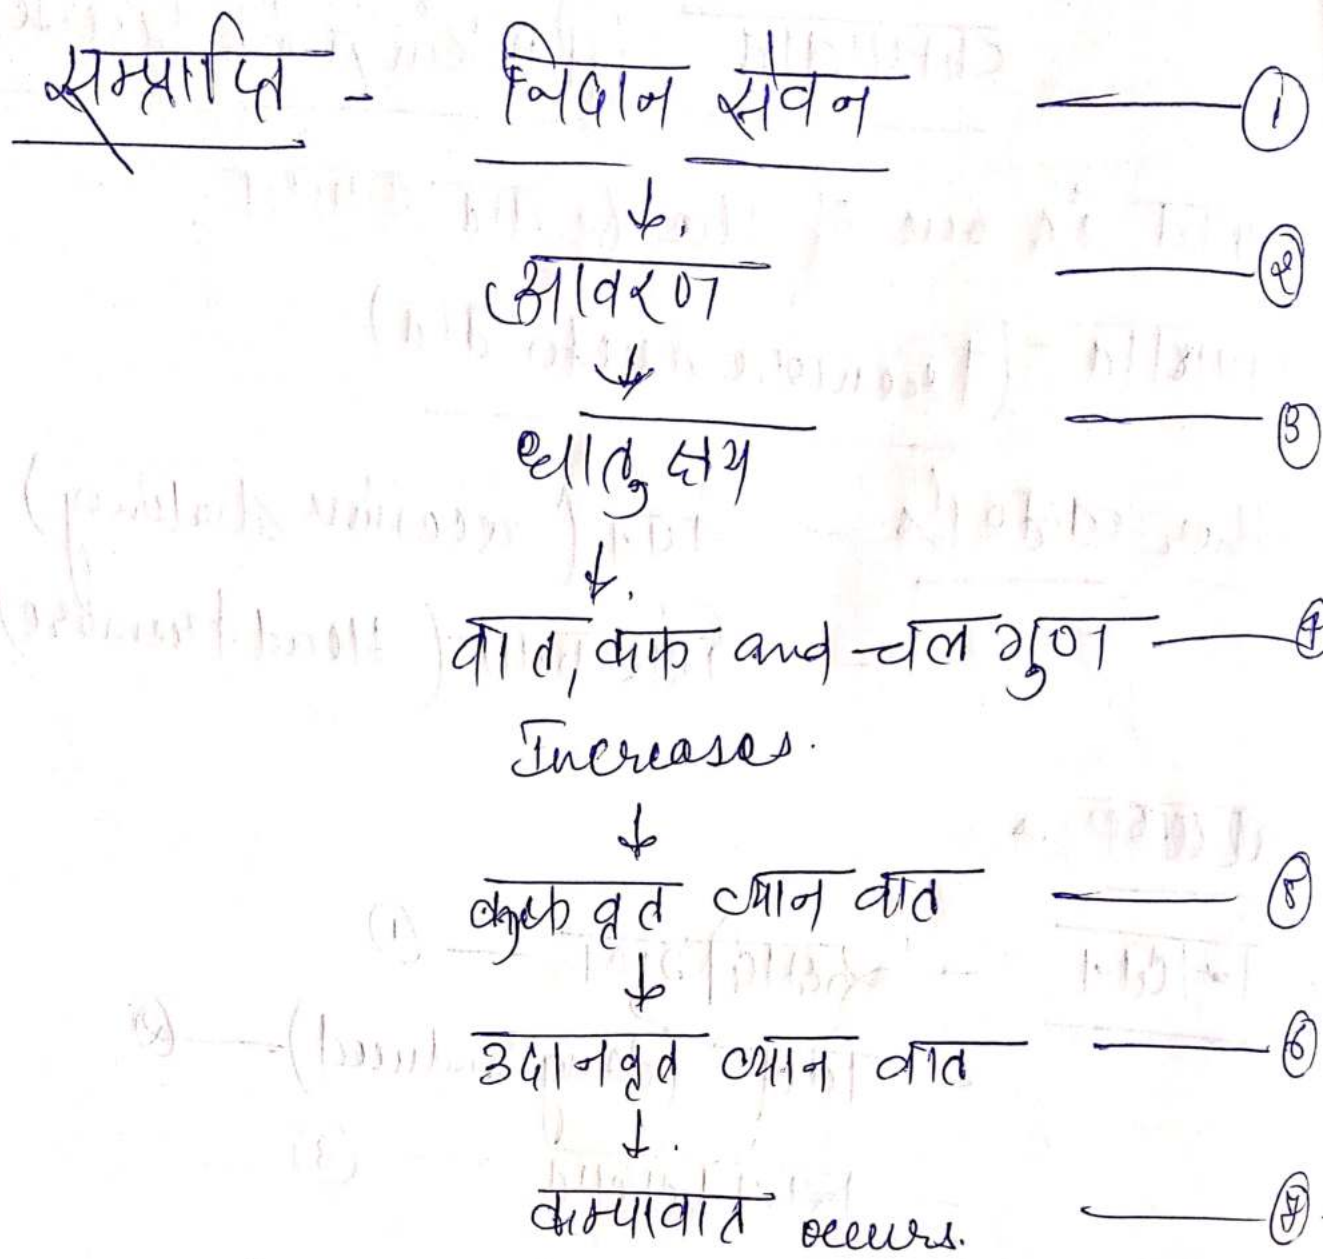 सम्प्राप्ति - निदान सेवन — ①
↓
आवरण — ②
↓
धातु क्षय — ③
↓
वात, कफ and चल गुण — ④
Increases.
↓
कफ वृत व्यान वात — ⑤
↓
उदानवृत व्यान वात — ⑥
↓
कम्पावात occurs. — ⑦